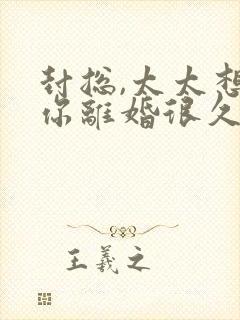 封总,太太想
你離婚很久
王羲之